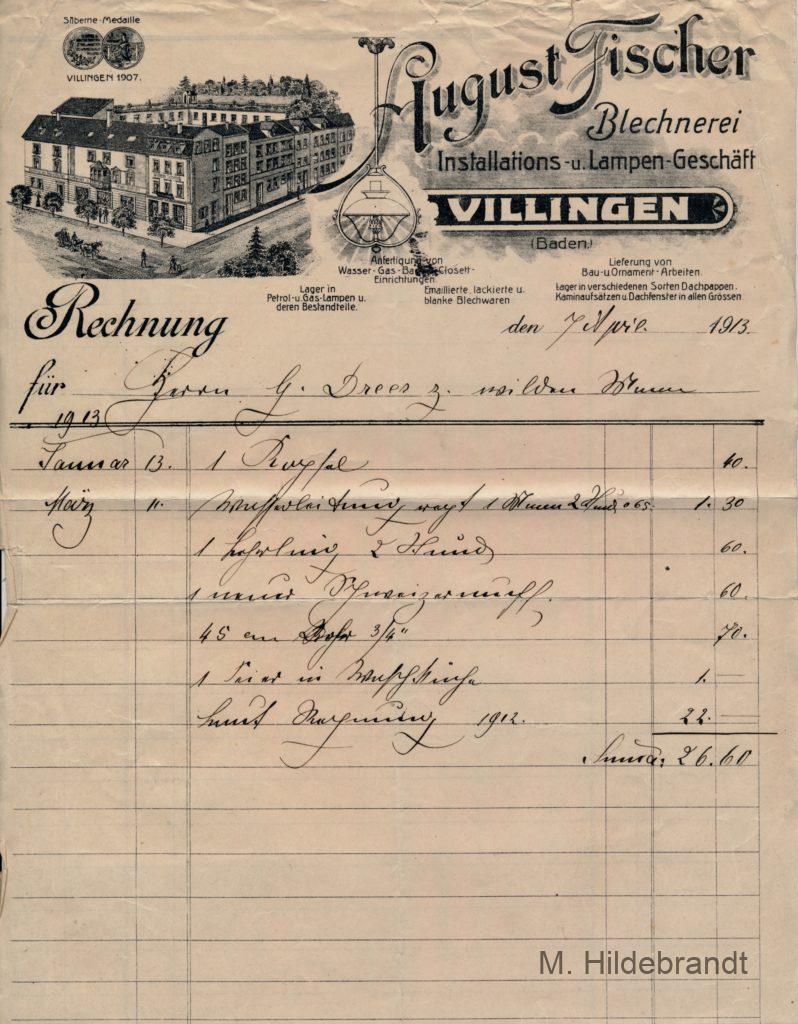 Silberne-Medaille
VILLINGEN 1907.
August Fischer
Blechnerei
Installations-u. Lampen-Geschäft
VILLINGEN
(Baden.)
Anfertigung von
Wasser-Gas-Bade- Closett-
Einrichtungen.
Lieferung von
Bau-u. Ornament-Arbeiten.
Lager in
Petrol-u. Gas-Lampen u.
deren Bestandteile.
Emaillierte, lackierte u.
blanke Blechwaren
Lager in verschiedenen Sorten Dachpappen.
Kaminaufsätzen u. Dachfenster in allen Grössen.
Rechnung
den 7 April 1913.
für Herrn G. Drees z. wilden Mann
1913
Januar 13. 1 40.
März 11. Wasserleitung rept 1 Mann 2 Stund o 65 1. 30
1 Lehrling 2 Stund 60.
1 neuer 60.
45 cm Rohr 3/4" 70.
1 in Waschküche 1. —
laut Rechnung 1912. 22. —
Suma: 26.60
M. Hildebrandt